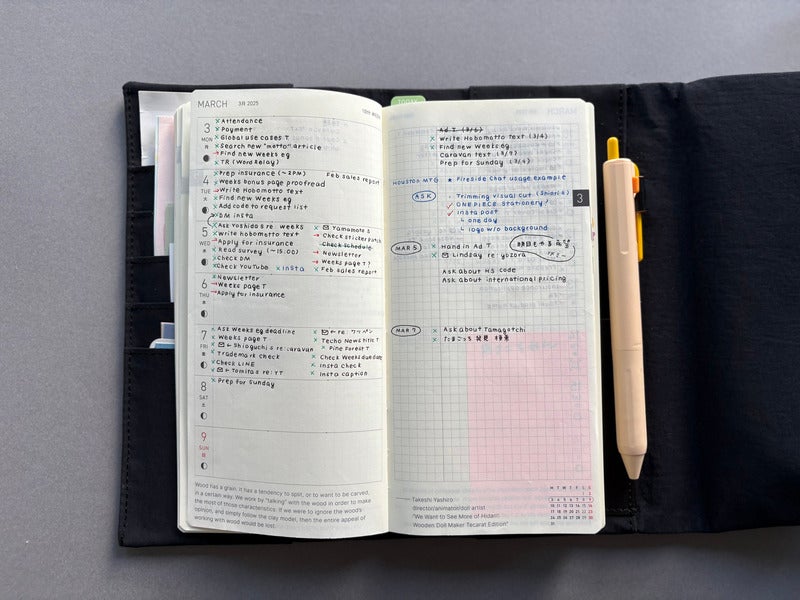 MARCH 3月 2025
3
MON
月
× Attendance
× Payment
× Global use cases T
× Search new "motto" article
→ Find new Weeks eg
× TR (Word Relay)
4
TUE
火
× Prep insurance (~2PM)
Feb sales report
× Weeks bonus page proofread
→ Write Hobomotto Text
× Find new Weeks eg
× Add code to request list
× DM insta
5
WED
水
× Ask Yoshida re: weeks
× Write hobomotto text
→ Apply for insurance
× Read survey (~15:00)
× Check DM
× Check YouTube
× Insta
× Yamamoto S
→ Check sticker patch
Check Schedule
→ Newsletter
→ Weeks page T?
× Feb sales report
6
THU
木
× Newsletter
→ Weeks page T
→ Apply for insurance
7
FRI
金
× Ask Weeks eg deadline
× Weeks page T
× ← Shioguchi S re: caravan
× Trademark check
× Check LINE
× ← Tomita S re: YT
× ← re: ワッペン
× Techo News title T
× Pine Forest T
× Check Weeks due date
× Insta check
× Insta caption
8
SAT
土
× Prep for Sunday
9
SUN
日
Wood has a grain, it has a tendency to split, or to want to be carved,
in a certain way. We work by "talking" with the wood in order to make
the most of those characteristics. If we were to ignore the wood's
opinion, and simply follow the clay model, then the entire appeal of
working with wood would be lost.
TODAY
Ad T (3/6)
× Write Hobomotto Text (3/4)
× Find new Weeks eg
Caravan text (3/7)
Prep for Sunday (3/4)
HOUSTON MTG
★ Fireside chat usage example
ASK
・ Trimming visual cut (Shiori S)
✓ ONE PIECE Stationery?
✓ Insta post
↳ one day
↳ logo w/o background
3
MAR 5
× Hand in Ad T
× Lindsay re: yozora
Ask about HS code
Ask about international pricing
MAR 7
× Ask about Tamagotchi
× たまごっち
Takeshi Yashiro
director/animator/doll artist
"We Want to See More of Hidari:
Wooden Doll Maker Tecarat Edition"
M T W T F S S
1 2
3 4 5 6 7 8 9
10 11 12 13 14 15 16
17 18 19 20 21 22 23
24 25 26 27 28 29 30
31